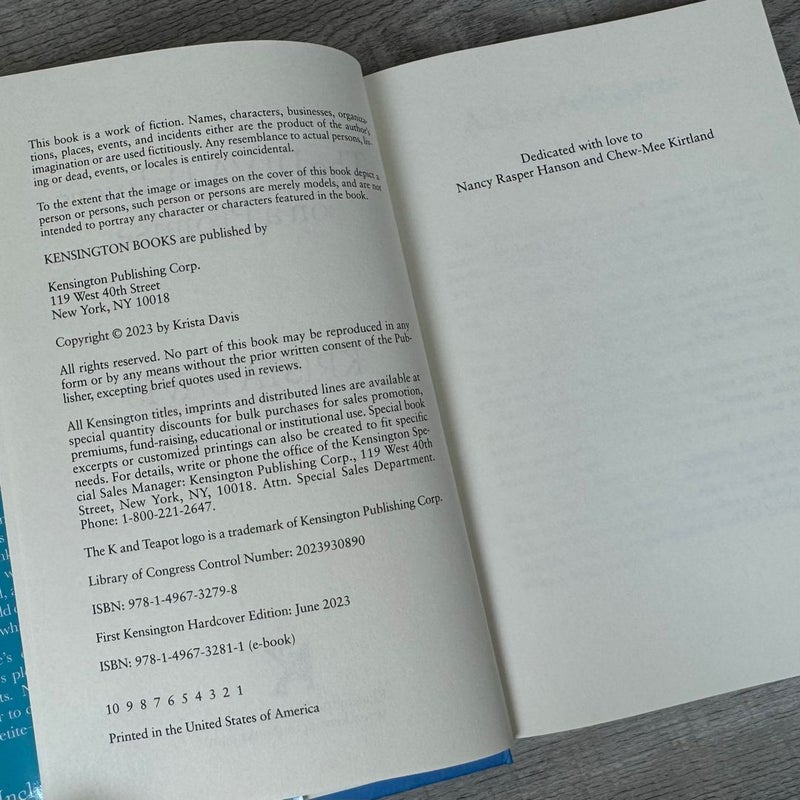 This book is a work of fiction. Names, characters, businesses, organiza-
tions, places, events, and incidents either are the product of the author's
imagination or are used fictitiously. Any resemblance to actual persons, liv-
ing or dead, events, or locales is entirely coincidental.
To the extent that the image or images on the cover of this book depict a
person or persons, such person or persons are merely models, and are not
intended to portray any character or characters featured in the book.
KENSINGTON BOOKS are published by
Kensington Publishing Corp.
119 West 40th Street
New York, NY 10018
Copyright © 2023 by Krista Davis
All rights reserved. No part of this book may be reproduced in any
form or by any means without the prior written consent of the Pub-
lisher, excepting brief quotes used in reviews.
All Kensington titles, imprints and distributed lines are available at
special quantity discounts for bulk purchases for sales promotion,
premiums, fund-raising, educational or institutional use. Special book
excerpts or customized printings can also be created to fit specific
needs. For details, write or phone the office of the Kensington Spe-
cial Sales Manager: Kensington Publishing Corp., 119 West 40th
Street, New York, NY, 10018. Attn. Special Sales Department.
Phone: 1-800-221-2647.
The K and Teapot logo is a trademark of Kensington Publishing Corp.
Library of Congress Control Number: 2023930890
ISBN: 978-1-4967-3279-8
First Kensington Hardcover Edition: June 2023
ISBN: 978-1-4967-3281-1 (e-book)
10 9 8 7 6 5 4 3 2 1
Printed in the United States of America
Dedicated with love to
Nancy Rasper Hanson and Chew-Mee Kirtland